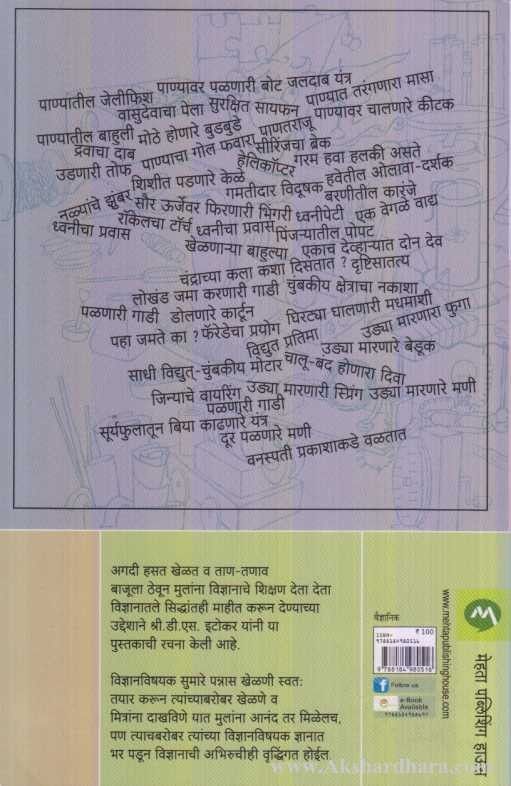 पाण्यावर पळणारी बोट जलदाब यंत्र
पाण्यातील जेलीफिश
वासुदेवाचा पेला सुरक्षित सायफन पाण्यात तरंगणारा मासा
पाण्यातील बाहुली मोठे होणारे बुडबुडे पाणतराजू पाण्यावर चालणारे कीटक
द्रवाचा दाब पाण्याचा गोल फवारा सीरिंजचा ब्रेक
उडणारी तोफ हेलिकॉप्टर गरम हवा हलकी असते
शिशीत पडणारे केळे गमतीदार विदूषक हवेतील ओलावा-दर्शक
नळ्यांचे झुंबर सौर ऊर्जेवर फिरणारी भिंगरी ध्वनीपेटी बरणीतील कारंजे
ध्वनीचा प्रवास रॉकेलचा टॉर्च ध्वनीचा प्रवास एक वेगळे वाद्य
पिंजऱ्यातील पोपट
खेळणाऱ्या बाहुल्या एकाच देव्हाऱ्यात दोन देव
चंद्राच्या कला कशा दिसतात ? दृष्टिसातत्य
लोखंड जमा करणारी गाडी चुंबकीय क्षेत्राचा नकाशा
पळणारी गाडी डोलणारे कार्टून घिरट्या घालणारी मधमाशी
पहा जमते का ? फॅरेडेचा प्रयोग विद्युत प्रतिमा उड्या मारणारा फुगा
उड्या मारणारे बेडूक
साधी विद्युत्-चुंबकीय मोटार चालू-बंद होणारा दिवा
जिन्याचे वायरिंग उड्या मारणारी स्प्रिंग उड्या मारणारे मणी
पळणारी गाडी
सूर्यफुलातून बिया काढणारे यंत्र
दूर पळणारे मणी
वनस्पती प्रकाशाकडे वळतात
अगदी हसत खेळत व ताण-तणाव
बाजूला ठेवून मुलांना विज्ञानाचे शिक्षण देता देता
विज्ञानातले सिद्धांतही माहीत करून देण्याच्या
उद्देशाने श्री.डी.एस. इटोकर यांनी या
पुस्तकाची रचना केली आहे.
विज्ञानविषयक सुमारे पन्नास खेळणी स्वतः
तयार करून त्यांच्याबरोबर खेळणे व
मित्रांना दाखविणे यात मुलांना आनंद तर मिळेलच,
पण त्याचबरोबर त्यांच्या विज्ञानविषयक ज्ञानात
भर पडून विज्ञानाची अभिरुचीही वृद्धिंगत होईल.
वैज्ञानिक
₹ 100
ISBN-
9788184980516
9 788184 980516
Follow us
e-Book
Available
www.mehtapublishinghouse.com
मेहता पब्लिशिंग हाऊस
www.Akshardhara.com